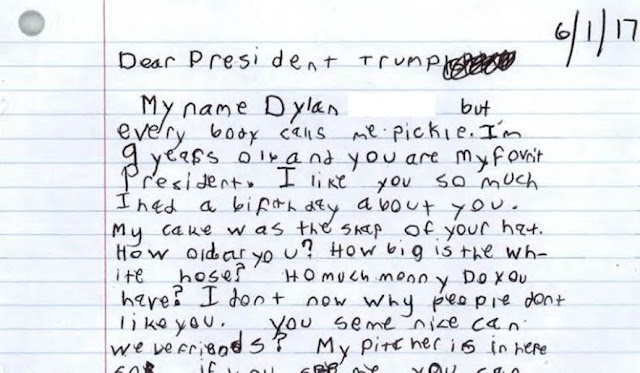 6/1/17
Dear President Trump
My name Dylan but
every body calls me pickle. I'm
9 years old and you are my fovrit
President. I like you so much
I had a birthday about you.
My cake was the shap of your hat.
How old ar yo u? How big is the wh-
ite hose? Ho much monny Do you
have? I dont now why people dont
like you. you seme nice can
we be friends? My pitcher is in here
so if you see me you can